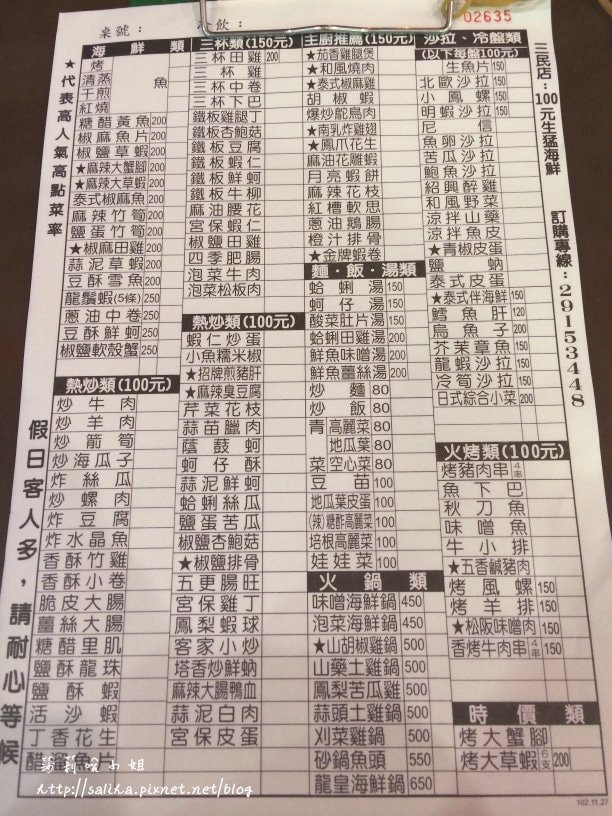 桌號： 飲：
02635
海鮮類
烤
清蒸
干煎
紅燒
魚
糖醋黃魚 200
椒麻魚片 200
椒鹽草蝦 200
★麻辣大蟹腳 200
★麻辣大草蝦 200
泰式椒麻魚 200
麻辣竹筍 200
鹽蛋竹筍 200
★椒麻田雞 200
蒜泥草蝦 200
豆酥雪魚 200
龍鬚蝦(5條) 250
蔥油中卷 250
豆酥鮮蚵 250
椒鹽軟殼蟹 250
熱炒類(100元)
炒牛肉
炒羊肉
炒箭筍
炒海瓜子
炸絲瓜
炒螺肉
炸豆腐
炸水晶魚
香酥竹雞
香酥小卷
脆皮大腸
薑絲大腸
糖醋里肌
鹽酥龍珠
鹽酥蝦
活沙蝦
丁香花生
醋溜魚片
三杯類(150元)
三杯田雞 200
三杯雞
三杯中卷
三杯下巴
鐵板雞腿丁
鐵板杏鮑菇
鐵板豆腐
鐵板蝦仁
鐵板鮮蚵
鐵板牛柳
麻油腰花
宮保蝦仁
椒鹽田雞
四季肥腸
泡菜牛肉
泡菜松板肉
熱炒類(100元)
蝦仁炒蛋
小魚糯米椒
★招牌煎豬肝
★麻辣臭豆腐
芹菜花枝
蒜苗臘肉
蔭鼓蚵
蚵仔酥
蒜泥鮮蚵
蛤蜊絲瓜
鹽蛋苦瓜
椒鹽杏鮑菇
★椒鹽排骨
五更腸旺
宮保雞丁
鳳梨蝦球
客家小炒
塔香炒鮮蚋
麻辣大腸鴨血
蒜泥白肉
宮保皮蛋
主廚推薦(150元)
★茄香雞腿煲
★和風燒肉
★泰式椒麻雞
胡椒蝦
爆炒鴕鳥肉
★南乳炸雞翅
★鳳爪花生
麻油花雕蝦
月亮蝦餅
麻辣花枝
紅槽軟思
蔥油鵝腸
橙汁排骨
★金牌蝦卷
麵・飯・湯類
蛤蜊湯 150
蚵仔湯 150
酸菜肚片湯 150
蛤蜊田雞湯 200
鮮魚味噌湯 200
鮮魚薑絲湯 200
炒麵 80
炒飯 80
青高麗菜 80
地瓜葉 80
菜空心菜 80
豆苗 100
地瓜葉皮蛋 100
(辣)糖酢高麗菜 100
培根高麗菜 100
娃娃菜 100
火鍋類
味噌海鮮鍋 450
泡菜海鮮鍋 450
★山胡椒雞鍋 500
山藥土雞鍋 500
鳳梨苦瓜雞 500
蒜頭土雞鍋 500
刈菜雞鍋 500
砂鍋魚頭 550
龍皇海鮮鍋 650
沙拉、冷盤類
(以下每盤100元)
生魚片 150
北歐沙拉 150
小鳳螺 150
明蝦沙拉 150
尼信
魚卵沙拉
苦瓜沙拉
鮑魚沙拉
紹興醉雞
和風野菜
涼拌山藥
涼拌魚皮
★青椒皮蛋
鹽蚋
泰式皮蛋
★泰式伴海鮮 150
鱈魚肝 120
烏魚子 200
芥茉章魚 150
龍蝦沙拉 150
冷筍沙拉 150
日式綜合小菜 200
火烤類(100元)
烤豬肉串 4串
魚下巴
秋刀魚
味噌魚
牛小排
★五香鹹豬肉
烤鳳螺 150
烤羊排 150
★松阪味噌肉 150
香烤牛肉串 4串 150
時價類
烤大蟹腳
烤大草蝦 6支 200
★代表高人氣高點菜率
假日客人多，請耐心等候
三民店：100元生猛海鮮
訂購專線：29153448
102.11.27
http://saliha.pixnet.net/blog